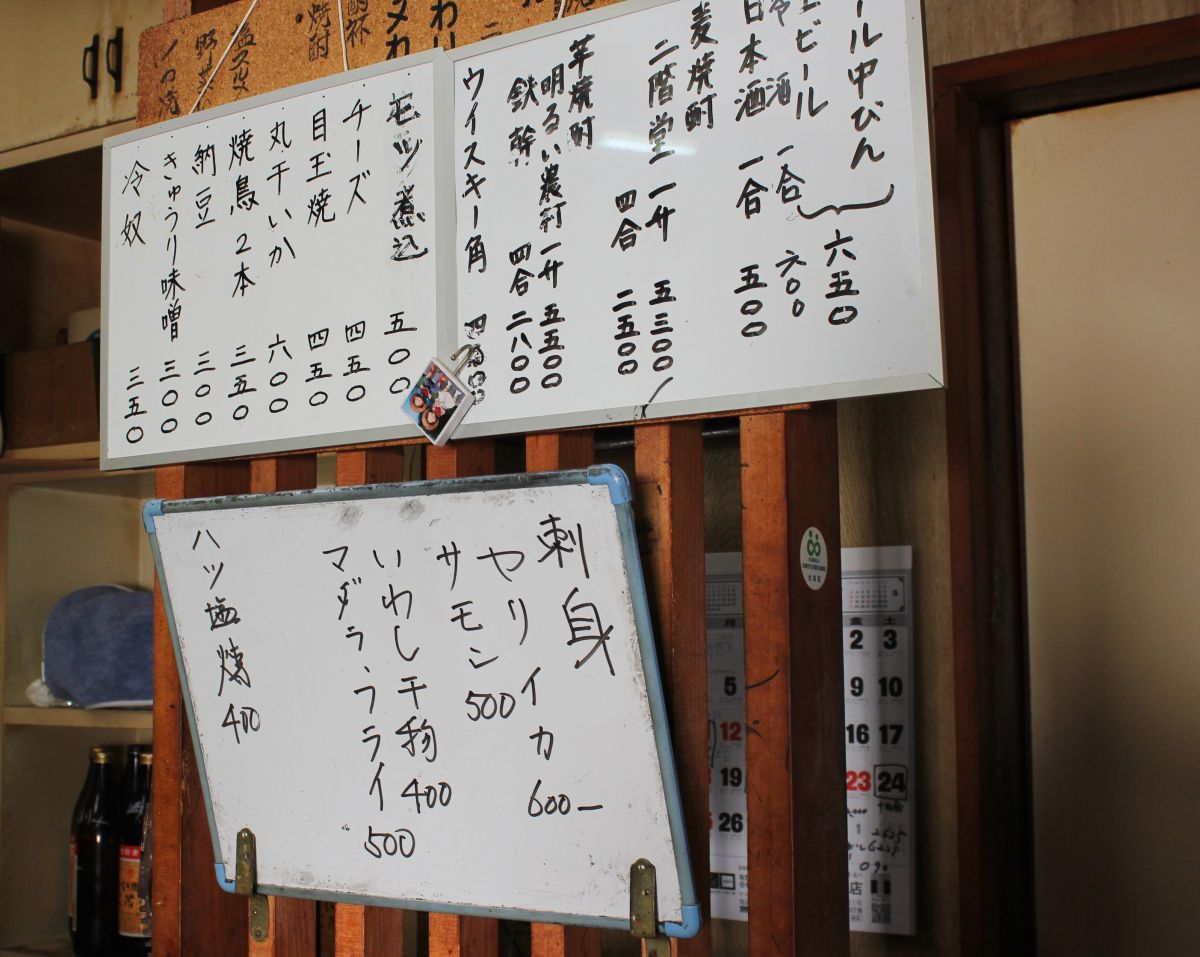 ール中びん
ビール 六五〇
冷酒 一合 六〇〇
日本酒 一合 五〇〇
麦焼酎
二階堂 一升 五三〇〇
四合 二五〇〇
芋焼酎
明るい農村 一升 五五〇〇
鉄幹 四合 二八〇〇
ウイスキー角 四〇〇
モツ煮込 五〇〇
チーズ 四五〇
目玉焼 四五〇
丸干いか 六〇〇
焼鳥2本 三五〇
納豆 三〇〇
きゅうり味噌 三〇〇
冷奴 三五〇
刺身
ヤリイカ 600ー
サモン 500
いわし干物 400
マダラ・フライ 500
ハツ塩焼 400
焼酎
月 金 土
2 3
5 9 10
12 16 17
19 23 24
26
店